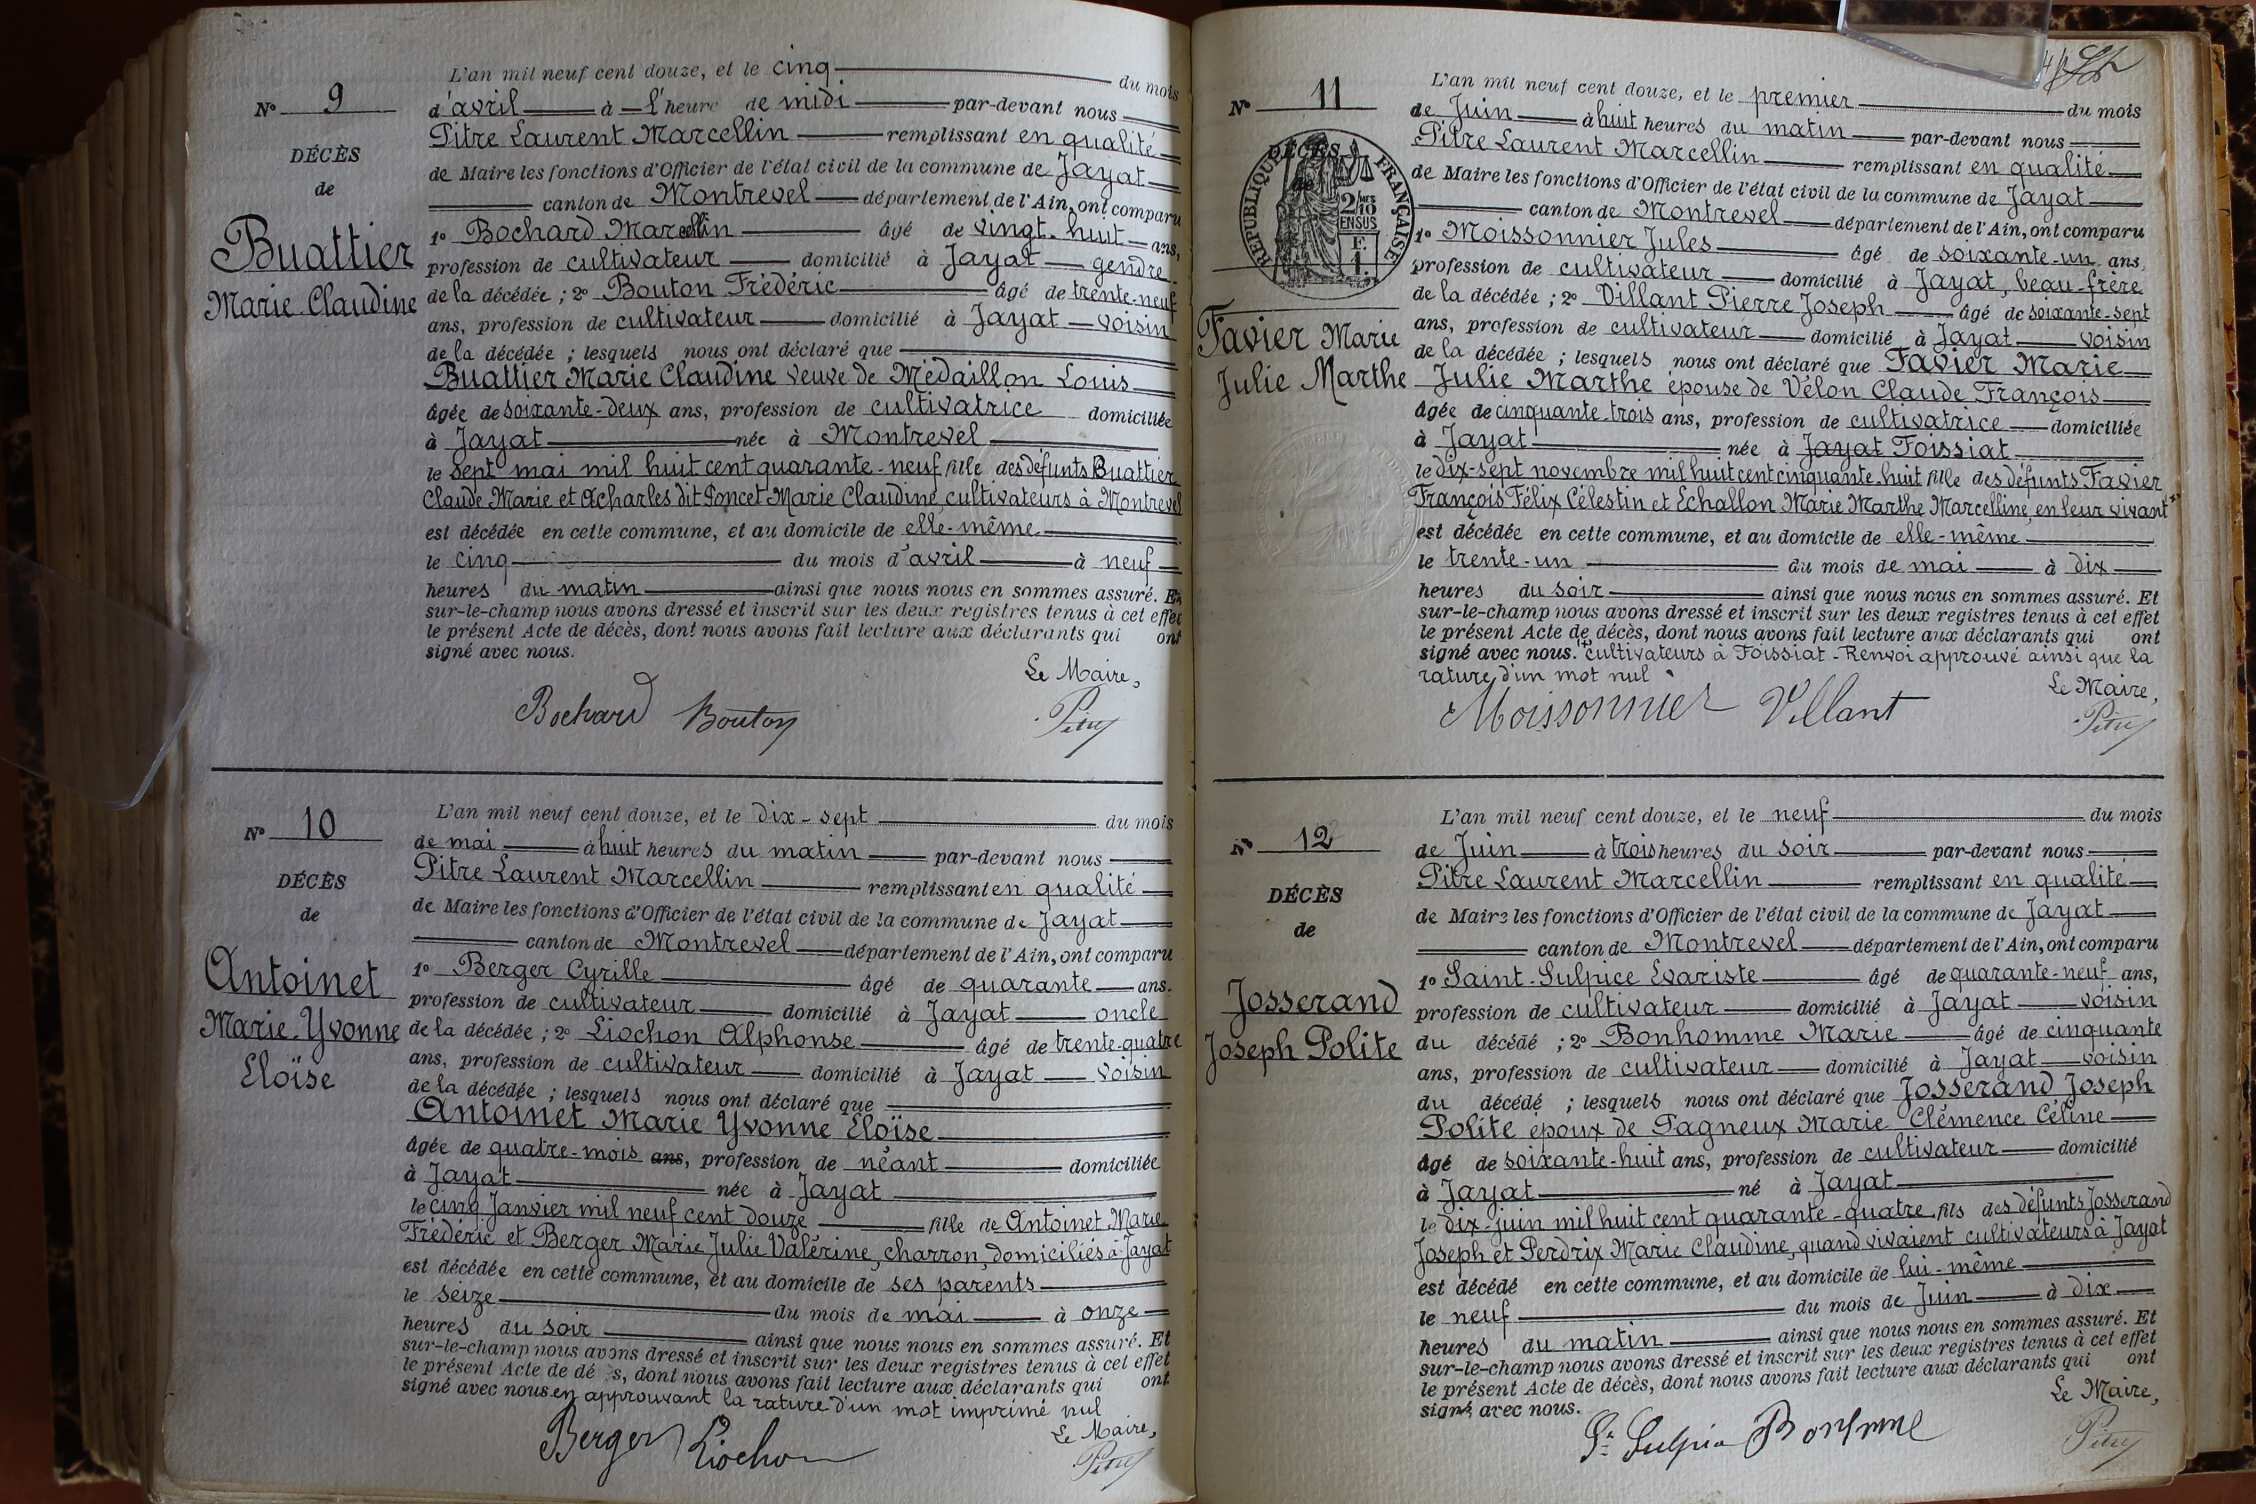 N° 9
DÉCÈS
de
Buattier
Marie Claudine
L'an mil neuf cent douze, et le cinq du mois
d'avril à l'heure de midi par-devant nous
Pitre Laurent Marcellin remplissant en qualité
de Maire les fonctions d'Officier de l'état civil de la commune de Jayat
canton de Montrevel département de l'Ain, ont comparu
1° Bochard Marcellin âgé de vingt-huit ans,
profession de cultivateur domicilié à Jayat gendre
de la décédée ; 2° Bouton Frédéric âgé de trente-neuf
ans, profession de cultivateur domicilié à Jayat voisin
de la décédée ; lesquels nous ont déclaré que
Buattier Marie Claudine veuve de Médaillon Louis
âgée de soixante-deux ans, profession de cultivatrice domiciliée
à Jayat née à Montrevel
le sept mai mil huit cent quarante-neuf fille des défunts Buattier
Claude Marie et Acharles dit Poncet Marie Claudine, cultivateurs à Montrevel
est décédée en cette commune, et au domicile de elle-même
le cinq du mois d'avril à neuf
heures du matin ainsi que nous nous en sommes assuré. Et
sur-le-champ nous avons dressé et inscrit sur les deux registres tenus à cet effet
le présent Acte de décès, dont nous avons fait lecture aux déclarants qui ont
signé avec nous.
Le Maire,
Bochard Bouton Pitre
N° 10
DÉCÈS
de
Antoinet
Marie-Yvonne
Eloïse
L'an mil neuf cent douze, et le dix-sept du mois
de mai à huit heures du matin par-devant nous
Pitre Laurent Marcellin remplissant en qualité
de Maire les fonctions d'Officier de l'état civil de la commune de Jayat
canton de Montrevel département de l'Ain, ont comparu
1° Berger Cyrille âgé de quarante ans.
profession de cultivateur domicilié à Jayat oncle
de la décédée ; 2° Liochon Alphonse âgé de trente-quatre
ans, profession de cultivateur domicilié à Jayat voisin
de la décédée ; lesquels nous ont déclaré que
Antoinet Marie Yvonne Eloïse
âgée de quatre-mois ans, profession de néant domiciliée
à Jayat née à Jayat
le cinq Janvier mil neuf cent douze fille de Antoinet Marie
Frédéric et Berger Marie Julie Valérine, charron, domiciliés à Jayat
est décédée en cette commune, et au domicile de ses parents
le seize du mois de mai à onze
heures du soir ainsi que nous nous en sommes assuré. Et
sur-le-champ nous avons dressé et inscrit sur les deux registres tenus à cet effet
le présent Acte de dé s, dont nous avons fait lecture aux déclarants qui ont
signé avec nous en approuvant la rature d'un mot imprimé nul
Le Maire,
Berger Liochon Pitre
N° 11
DÉCÈS
de
RÉPUBLIQUE FRANÇAISE
2/10 EN SUS
F. 1.
Favier Marie
Julie Marthe
L'an mil neuf cent douze, et le premier du mois
de Juin à huit heures du matin par-devant nous
Pitre Laurent Marcellin remplissant en qualité
de Maire les fonctions d'Officier de l'état civil de la commune de Jayat
canton de Montrevel département de l'Ain, ont comparu
1° Moissonnier Jules âgé de soixante-un ans,
profession de cultivateur domicilié à Jayat, beau-frère
de la décédée ; 2° Villant Pierre Joseph âgé de soixante-sept
ans, profession de cultivateur domicilié à Jayat voisin
de la décédée ; lesquels nous ont déclaré que Favier Marie
Julie Marthe épouse de Vélon Claude François
âgée de cinquante-trois ans, profession de cultivatrice domiciliée
à Jayat née à Jayat Foissiat
le dix-sept novembre mil huit cent cinquante-huit fille des défunts Favier
François Félix Célestin et Echallon Marie Marthe Marcelline, en leur vivant +
est décédée en cette commune, et au domicile de elle-même
le trente-un du mois de mai à dix
heures du soir ainsi que nous nous en sommes assuré. Et
sur-le-champ nous avons dressé et inscrit sur les deux registres tenus à cet effet
le présent Acte de décès, dont nous avons fait lecture aux déclarants qui ont
signé avec nous. + cultivateurs à Foissiat - Renvoi approuvé ainsi que la
rature d'un mot nul
Le Maire,
Moissonnier Villant Pitre
N° 12
DÉCÈS
de
Josserand
Joseph Polite
L'an mil neuf cent douze, et le neuf du mois
de Juin à trois heures du soir par-devant nous
Pitre Laurent Marcellin remplissant en qualité
de Maire les fonctions d'Officier de l'état civil de la commune de Jayat
canton de Montrevel département de l'Ain, ont comparu
1° Saint-Sulpice Evariste âgé de quarante-neuf ans,
profession de cultivateur domicilié à Jayat voisin
du décédé ; 2° Bonhomme Marie âgé de cinquante
ans, profession de cultivateur domicilié à Jayat voisin
du décédé ; lesquels nous ont déclaré que Josserand Joseph
Polite époux de Pagneux Marie Clémence Céline
âgé de soixante-huit ans, profession de cultivateur domicilié
à Jayat né à Jayat
le dix-juin mil huit cent quarante-quatre fils des défunts Josserand
Joseph et Perdrix Marie Claudine, quand vivaient cultivateurs à Jayat
est décédé en cette commune, et au domicile de lui-même
le neuf du mois de Juin à dix
heures du matin ainsi que nous nous en sommes assuré. Et
sur-le-champ nous avons dressé et inscrit sur les deux registres tenus à cet effet
le présent Acte de décès, dont nous avons fait lecture aux déclarants qui ont
signé avec nous.
Le Maire,
St Sulpice Bonhomme Pitre